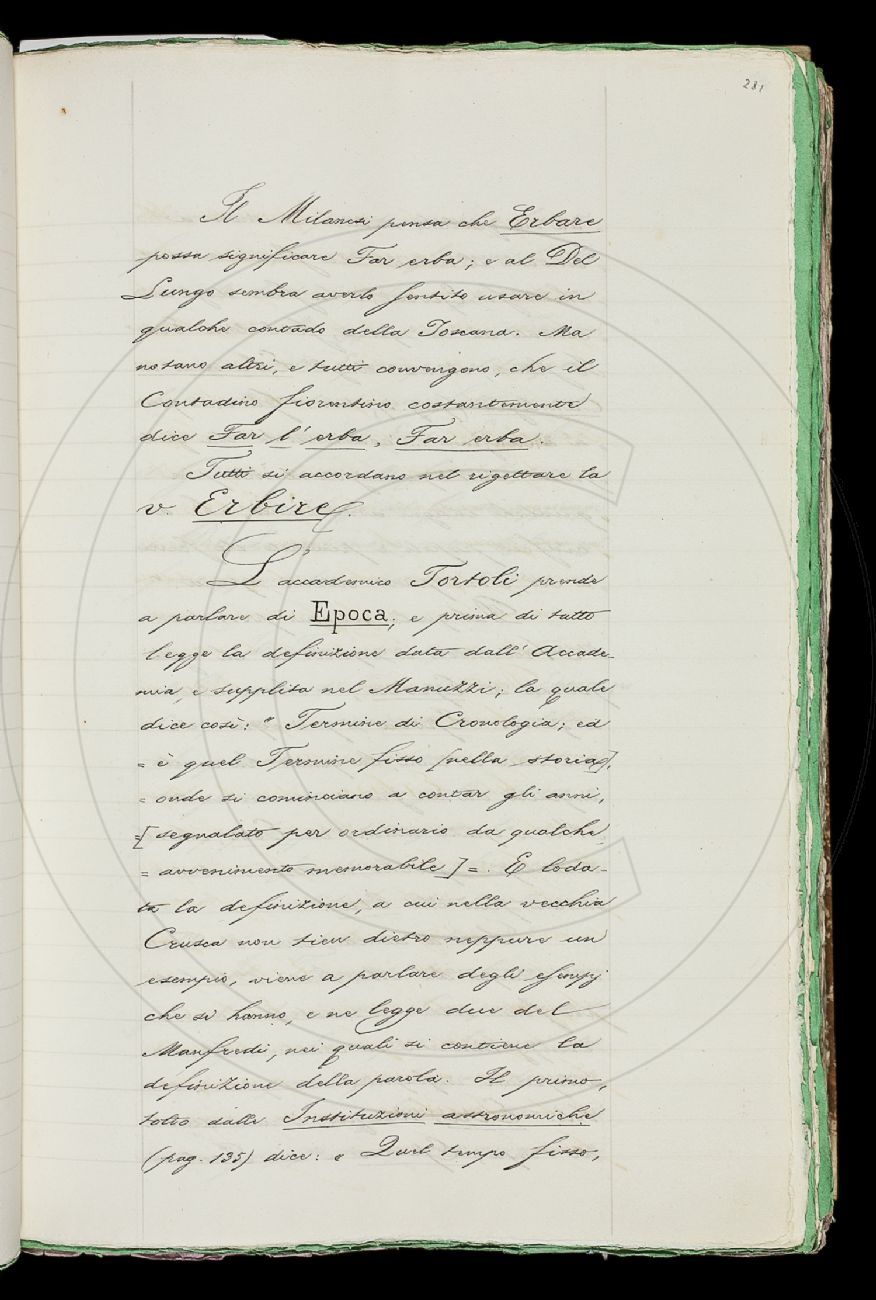 281
Il Milanesi pensa che Erbare
possa significare Far erba; e al Del
Lungo sembra averlo sentito usare in
qualche contado della Toscana. Ma
notano altri, e tutti convengono, che il
Contadino fiorentino costantemente
dice Far l'erba, Far erba.
Tutti si accordano nel rigettare la
v. Erbire.
L'accademico Tortoli prende
a parlare di Epoca; e prima di tutto
legge la definizione data dall'Accade-
mia, e supplita nel Manuzzi; la quale
dice così: " Termine di Cronologia; ed
= è quel Termine fisso [nella storia],
= onde si cominciano a contar gli anni,
=[segnalato per ordinario da qualche
= avvenimento memorabile] =. E loda-
ta la definizione, a cui nella vecchia
Crusca non tien dietro neppure un
esempio, viene a parlare degli esempj
che si hanno, e ne legge due del
Manfredi, nei quali si contiene la
definizione della parola. Il primo,
tolto dalle Instituzioni astronomiche
(pag. 135) dice: « Quel tempo fisso,